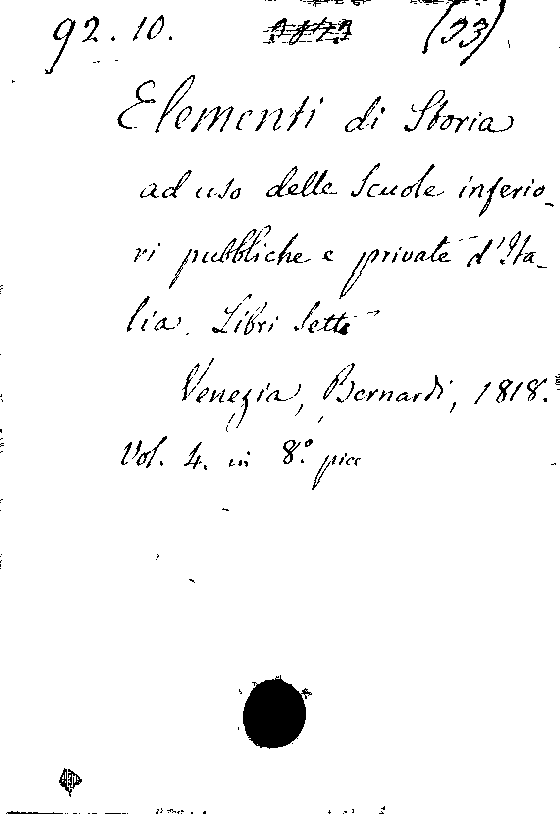 92. 10. (33)
Elementi di Storia
ad uso delle Scuole inferio-
ri pubbliche e private d'Ita-
lia. Libri Sette
Venezia, Bernardi, 1818.
Vol. 4. in 8.º picc